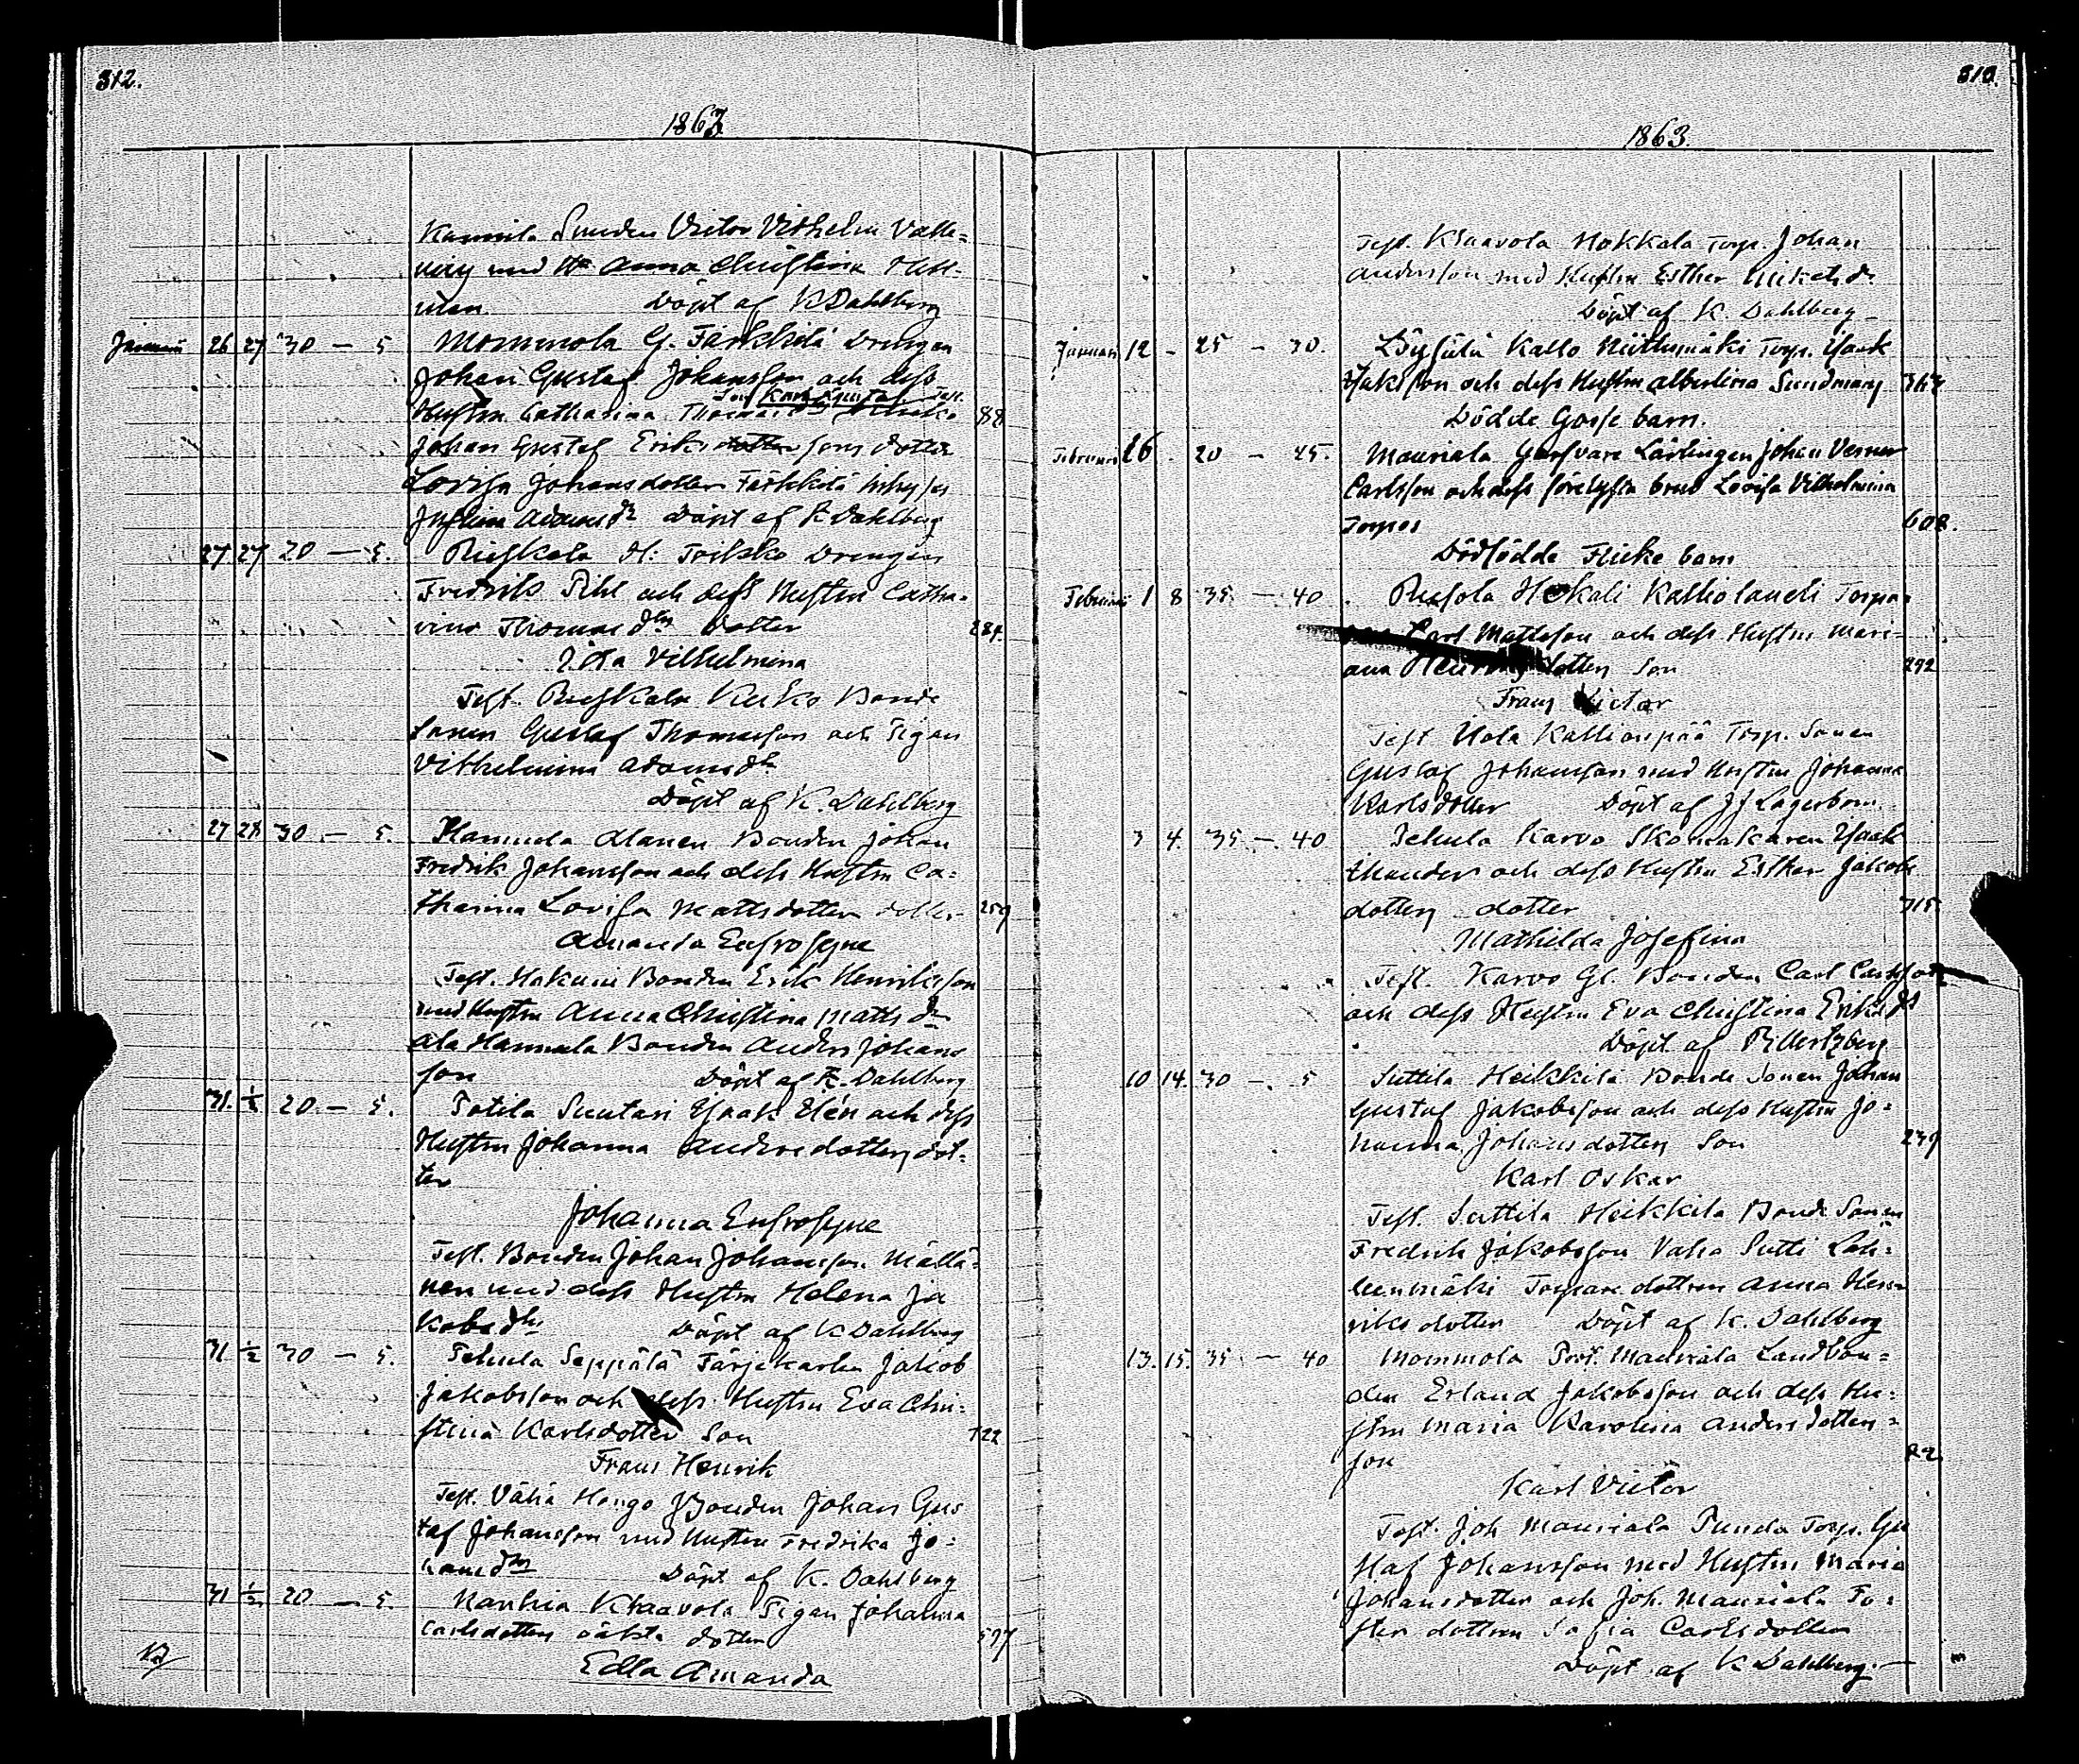 312.
1863
Kannila Sunden Victor Vilhelm Valle=
niy med H. Anna Christina
Döpt af K Dahlberg
Januari 26 27 30 — 5 Mommola G. Färkkilä Drengen
Johan Gustaf Johansson och dess
Son Karl Gustaf Test.
Hustru Catharina 88
Johan Gustaf Eriks dotter sons dotter
Lovisa Johansdotter Färkkilä
Justina Adamsdr Döpt af K Dahlberg
27. 27 20 — 5. Rieskala H: Drengen
Fredrik Pihl och dess Hustru Catha=
rina Thomas dtr dotter 284.
Ida Vilhelmina
Test. Rieskala Bonde
Sonen Gustaf Thomasson och Pigan
Vilhelmina Adamsdtr
Döpt af K. Dahlberg
27 28 30 — 5. Hannula Alanen Bonden Johan
Fredrik Johansson och dess Hustru Ca=
tharina Lovisa Mattsdotter dotter 259
Amanda Eufrosyne
Test. Hakuni Bonden Erik Henriksson
med Hustru Anna Christina Matts dr
Ala Hannula Bonden Anders Johans
son Döpt af K. Dahlberg
31. ½ 20 — 5. Potila Suutari Isaak Elén och dess
Hustru Johanna Andersdotter dot=
ter
Johanna Eufrosyne
Test. Bonden Johan Johansson Mällä=
nen med dess Hustru Helena Ja
kobsdtr Döpt af K Dahlberg
31 ½ 30 — 5. Tehula Seppälä Färjekarlen Jakob
Jakobsson och dess Hustru Eva Chri=
stina Karlsdotter Son 322
Frans Henrik
Test. Vähä Hongo Bonden Johan Gus
taf Johansson med Hustru Fredrika Jo=
hansdtr Döpt af K. Dahlberg
31 ½ 20 — 5. Kanhia Klaavola Pigan Johanna
Carlsdotters oäkta dotter 597
Edla Amanda
313.
1863.
Test. Klaavola Nokkala Torp. Johan
Andersson med Hustru Esther Mickelsdr
Döpt af K. Dahlberg
Januari 12 - 25 - 30. Löysälä Kallo Niittumäki Torp. Isaak
Isaksson och dess Hustru Albertina Sundman 363
Dödde Gosse barn.
Februari 26 . 20 — 25. Mauriala Garfvare Lärlingen Johan Verner
Carlsson och dess förelyste brud Lovisa Vilhelmina
602.
Dödfödde Flicke barn
Februari 1 8 35. — 40 Punola Hokali Kalliolaudi Torpa=
Carl Mattsson och dess Hustru Mari=
ana dotter Son 292
Frans Victor
Test Uola Kallionpää Torp. Sonen
Gustaf Johansson med Hustru Johanna
Karlsdotter Döpt af J J Lagerbom.
3 4. 35. — 40 Tehula Karvo Skomakaren Isaak
Thander och dess Hustru Esther Jakobs
dotters dotter 315.
Mathilda Josefina
Test. Karvo Gl. Bonden Carl Carlsson
och dess Hustru Eva Christina Eriks dr
Döpt af
10 14. 30 — 5 Suttila Heikkilä Bonde Sonen Johan
Gustaf Jakobsson och dess Hustru Jo=
hanna Johansdotter Son 239
Karl Oskar
Test. Suttila Heikkilä Bonde Sonen
Fredrik Jakobsson Vaha Sutti Leh=
Torpare dottren Anna Hen
riksdotter Döpt af K. Dahlberg
13. 15. 35. — 40 Mommola Prof. Mauriala Landbon=
den Erland Jakobsson och dess Hu=
stru Maria Karolina Anders dotter=
son 82
Karl Victor
Test. Joh Mauriala Punda Torp. Gu
staf Johansson med Hustru Maria
Johansdotter och Joh. Mauriala Fo=
ster dottren Sofia Carlsdotter
Döpt af K Dahlberg.